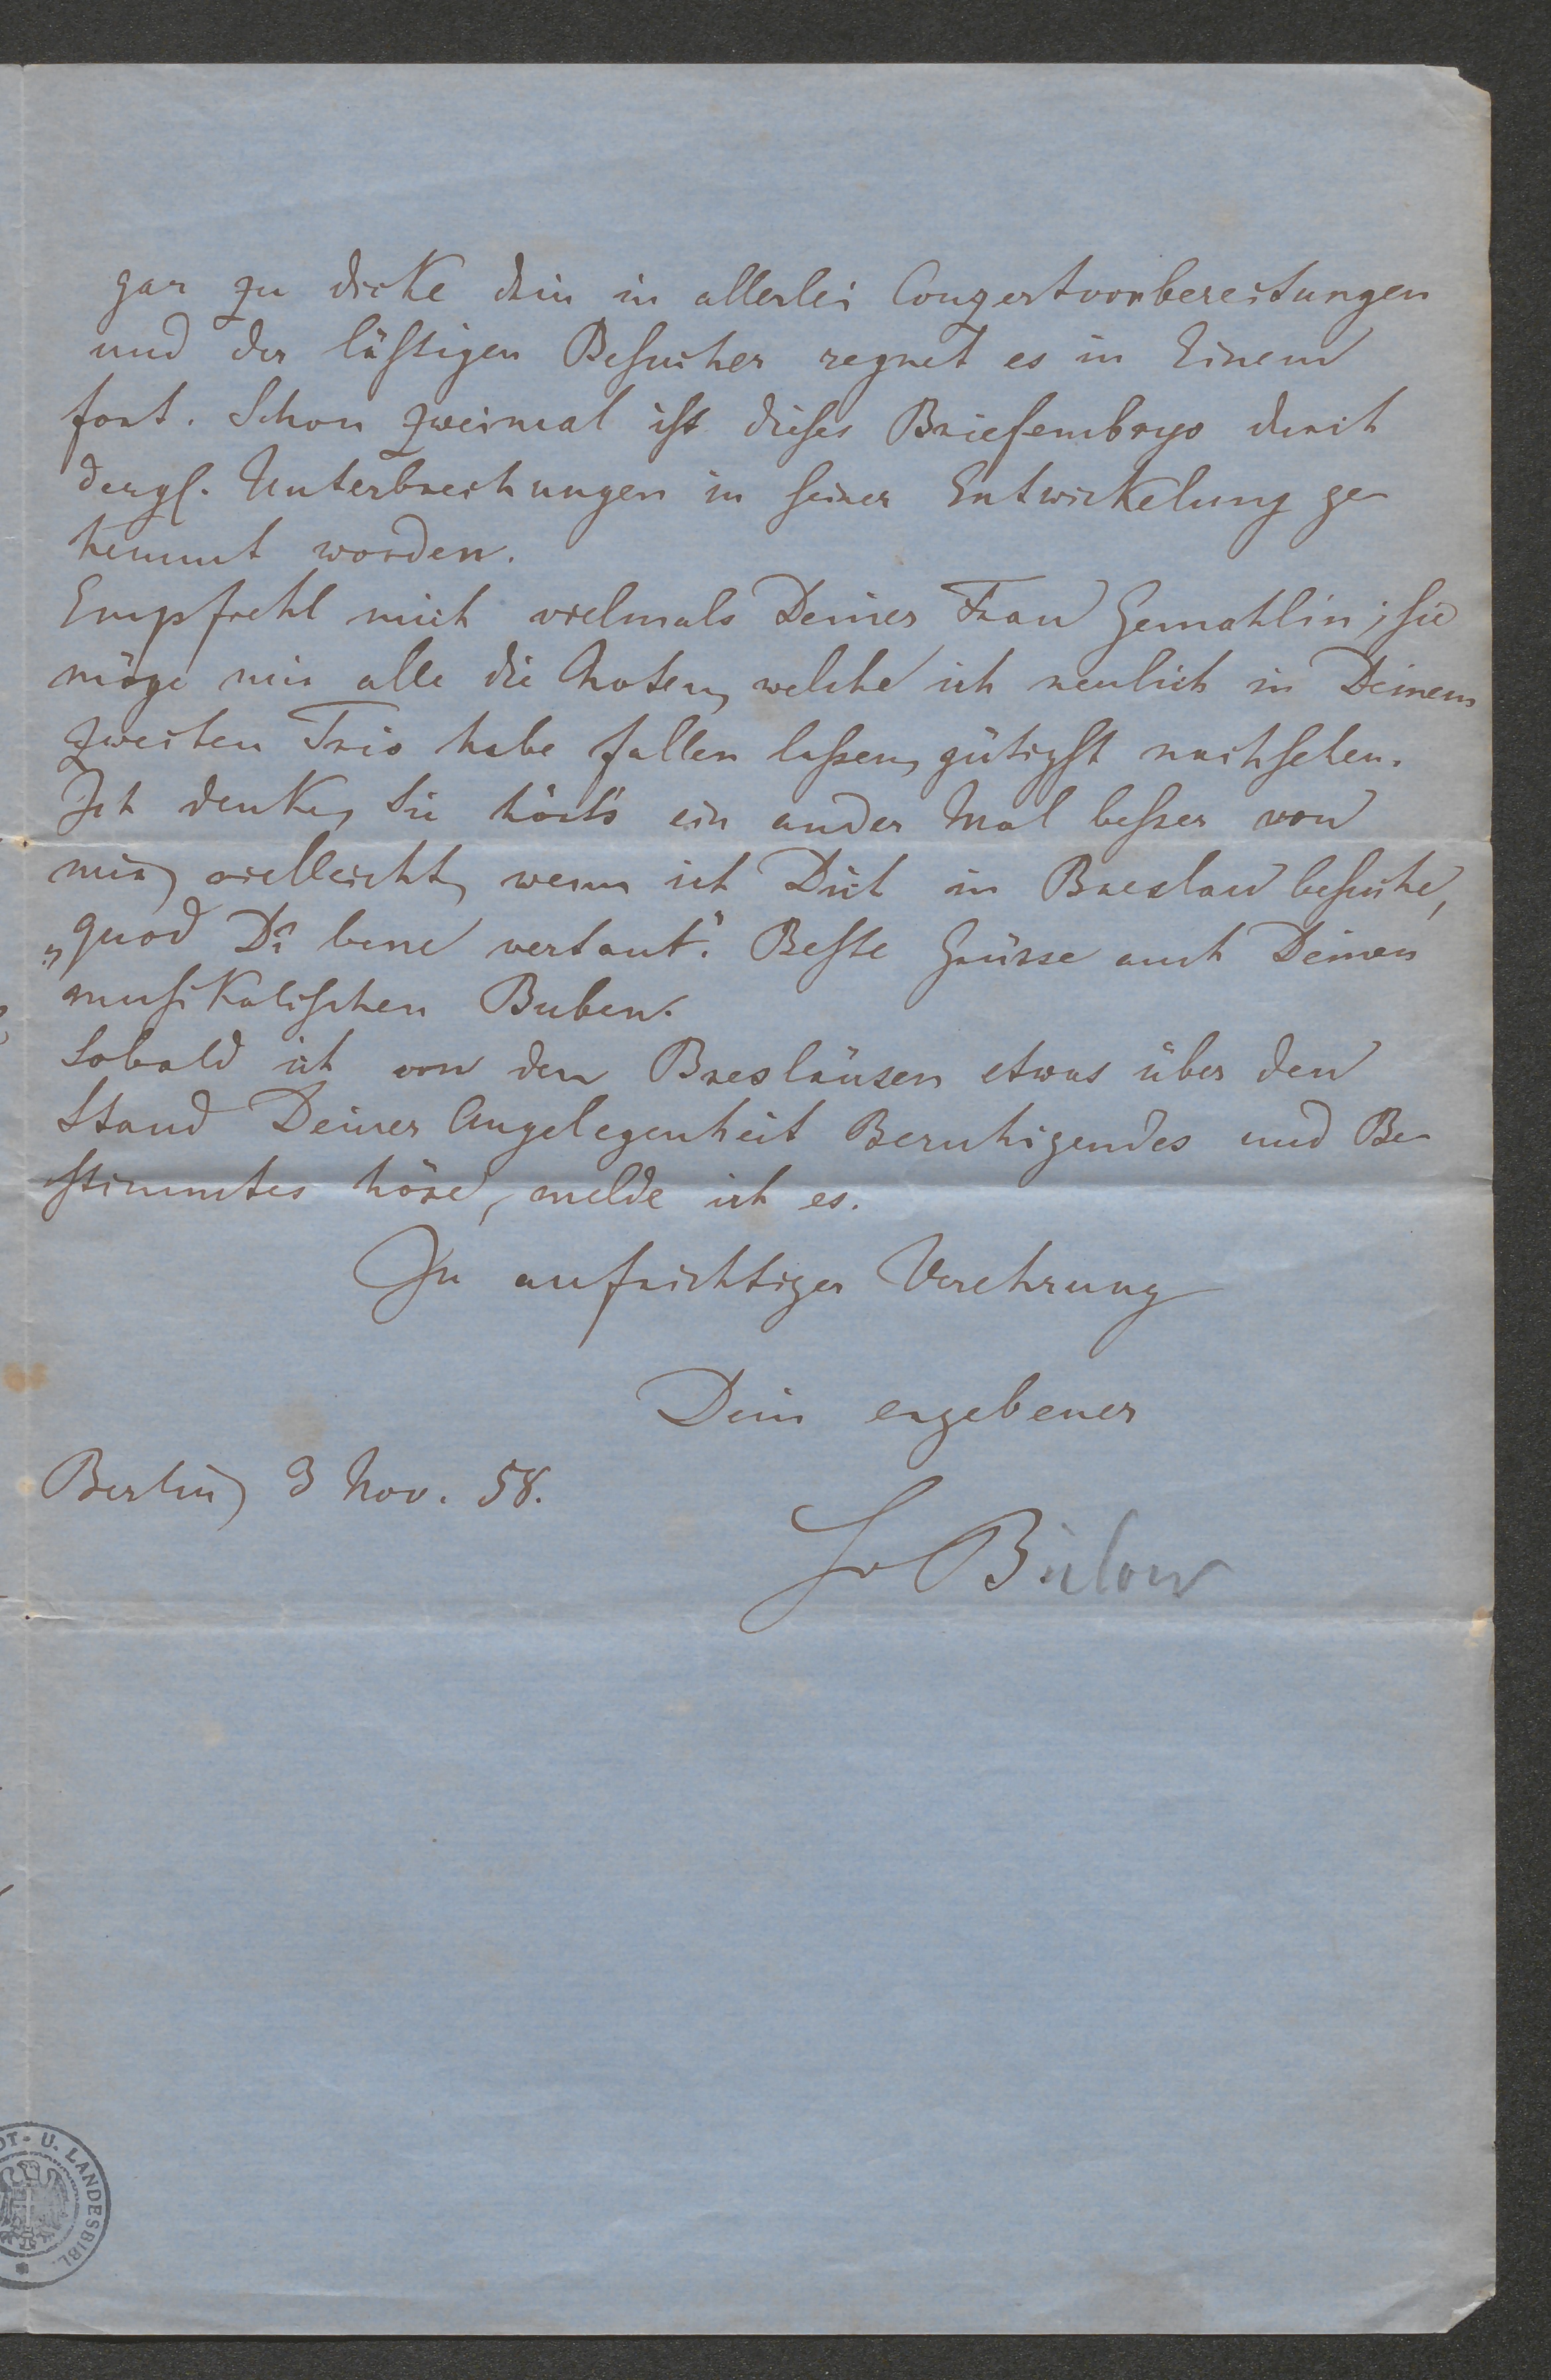 gar zu dicke drin in allerlei Conzertvorbereitungen
und der lästigen Besucher regnet es in Einem
fort. Schon zweimal ist dieses Briefembryo durch
dergl. Unterbrechungen in seiner Entwickelung ge-
hemmt worden.
Empfiehl mich vielmals Deiner Frau Gemahlin; sie
möge mir alle die Noten, welche ich neulich in Deinem
zweiten Trio habe fallen lassen, gütigst nachsehen.
Ich denke, Sie hört's ein ander Mal besser von
mir, vielleicht, wenn ich Dich in Breslau besuche,
„quod Di bene vertant". Beste Grüsse auch Deinen
musikalischen Buben.
Sobald ich von den Bresläusen etwas über den
Stand Deiner Angelegenheit Beruhigendes und Be-
stimmtes höre, melde ich es.
In aufrichtiger Verehrung
Dein ergebener
Berlin, 3 Nov. 58.
HvBülow
DT- U. LANDESBIBL.